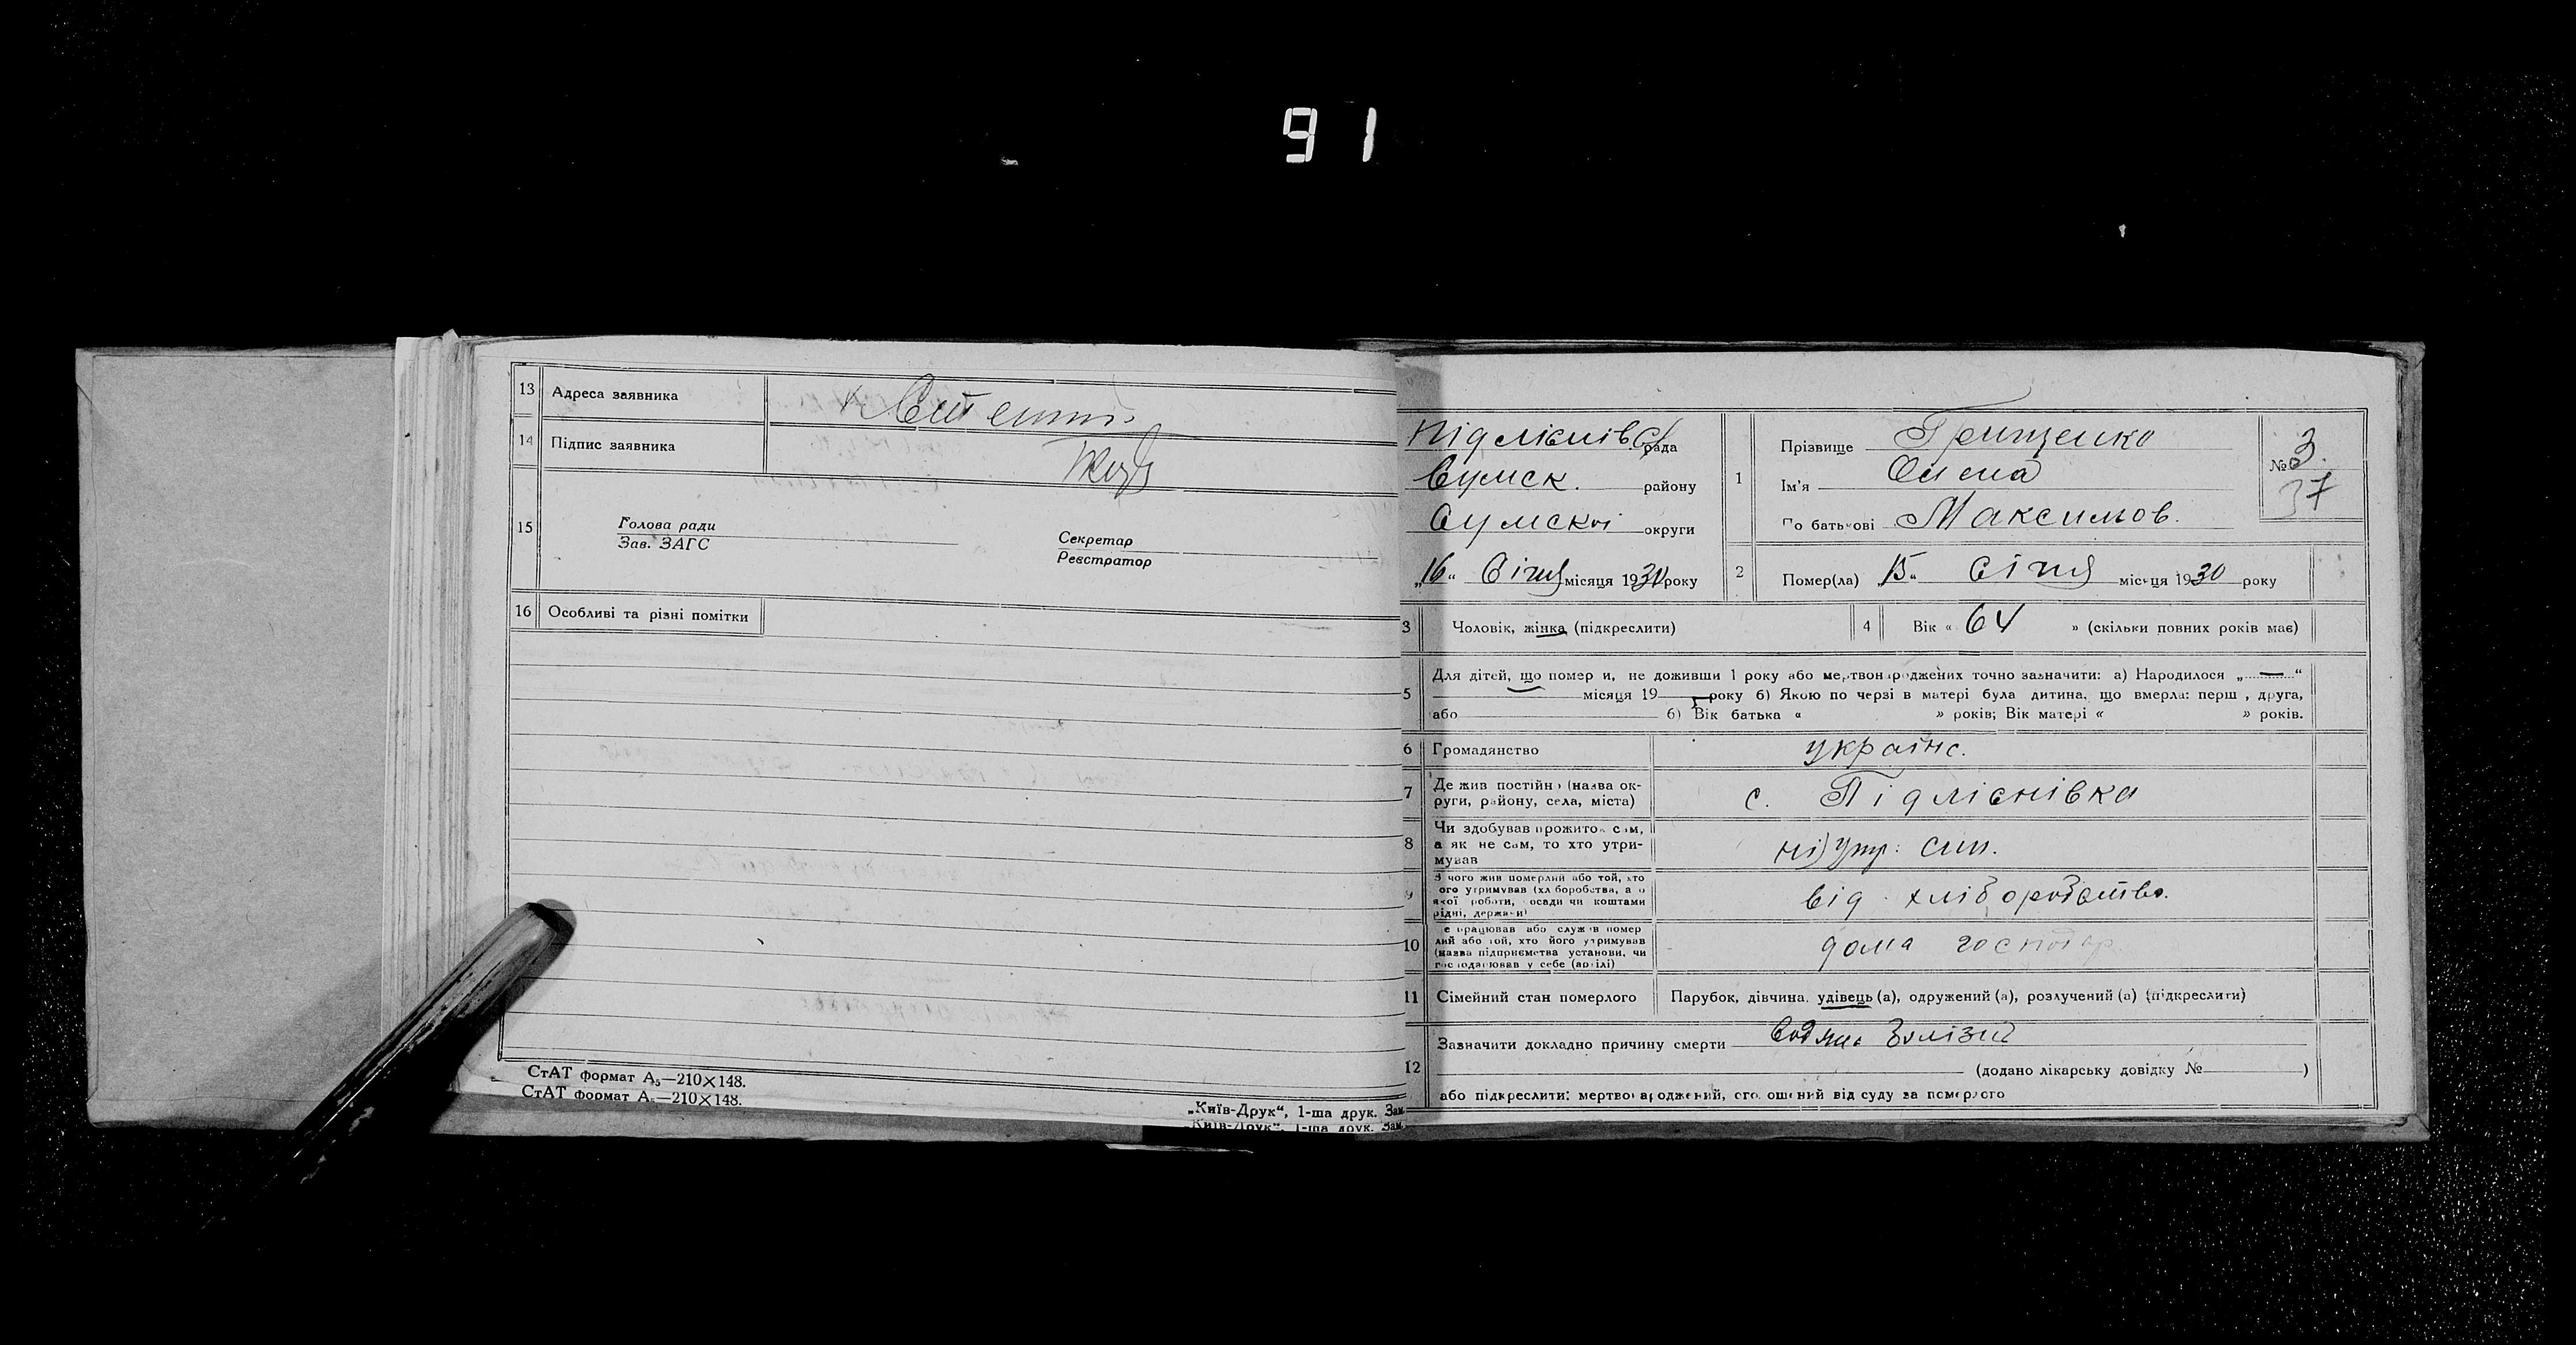 91
13 Адреса заявника
14 Підпис заявника
15 Голова ради
Зав. ЗАГС
Секретар
Реєстратор
16 Особливі та різні помітки
СтАТ формат А₅—210×148.
СтАТ формат А₅—210×148.
„Київ-Друк“, 1-ша друк. Зам
„Київ-Друк“, 1-ша друк. Зам
Підліснівс рада
Сумск. району
Сумскої округи
„16“ Січня місяця 1930 року
1 Прізвище Грищенко
Ім'я Олена
По батькові Максимов.
№ 3.
37
2 Помер(ла) „15“ Січня місяця 1930 року
3 Чоловік, жінка (підкреслити)
4 Вік « 64 » (скільки повних років має)
5 Для дітей, що померли, не доживши 1 року або мертвонароджених точно зазначити: а) Народилося „ — “
місяця 19 року б) Якою по черзі в матері була дитина, що вмерла: перша, друга,
або б) Вік батька « » років; Вік матері « » років.
6 Громадянство українс.
7 Де жив постійно (назва округи, району, села, міста) с. Підліснівка
8 Чи здобував прожиток сам, а як не сам, то хто утримував ні) утр: син.
9 З чого жив померлий або той, хто його утримував (хліборобства, а о якої роботи, посади чи коштами рідні, держави) від хліборобства.
10 Де працював або служив померлий або той, хто його утримував (назва підприємства установи, чи господарював у себе (артілі) дома господар
11 Сімейний стан померлого Парубок, дівчина, удівець (а), одружений (а), розлучений (а) (підкреслити)
12 Зазначити докладно причину смерти
(додано лікарську довідку № )
або підкреслити: мертвонароджений, оголошений від суду за померлого